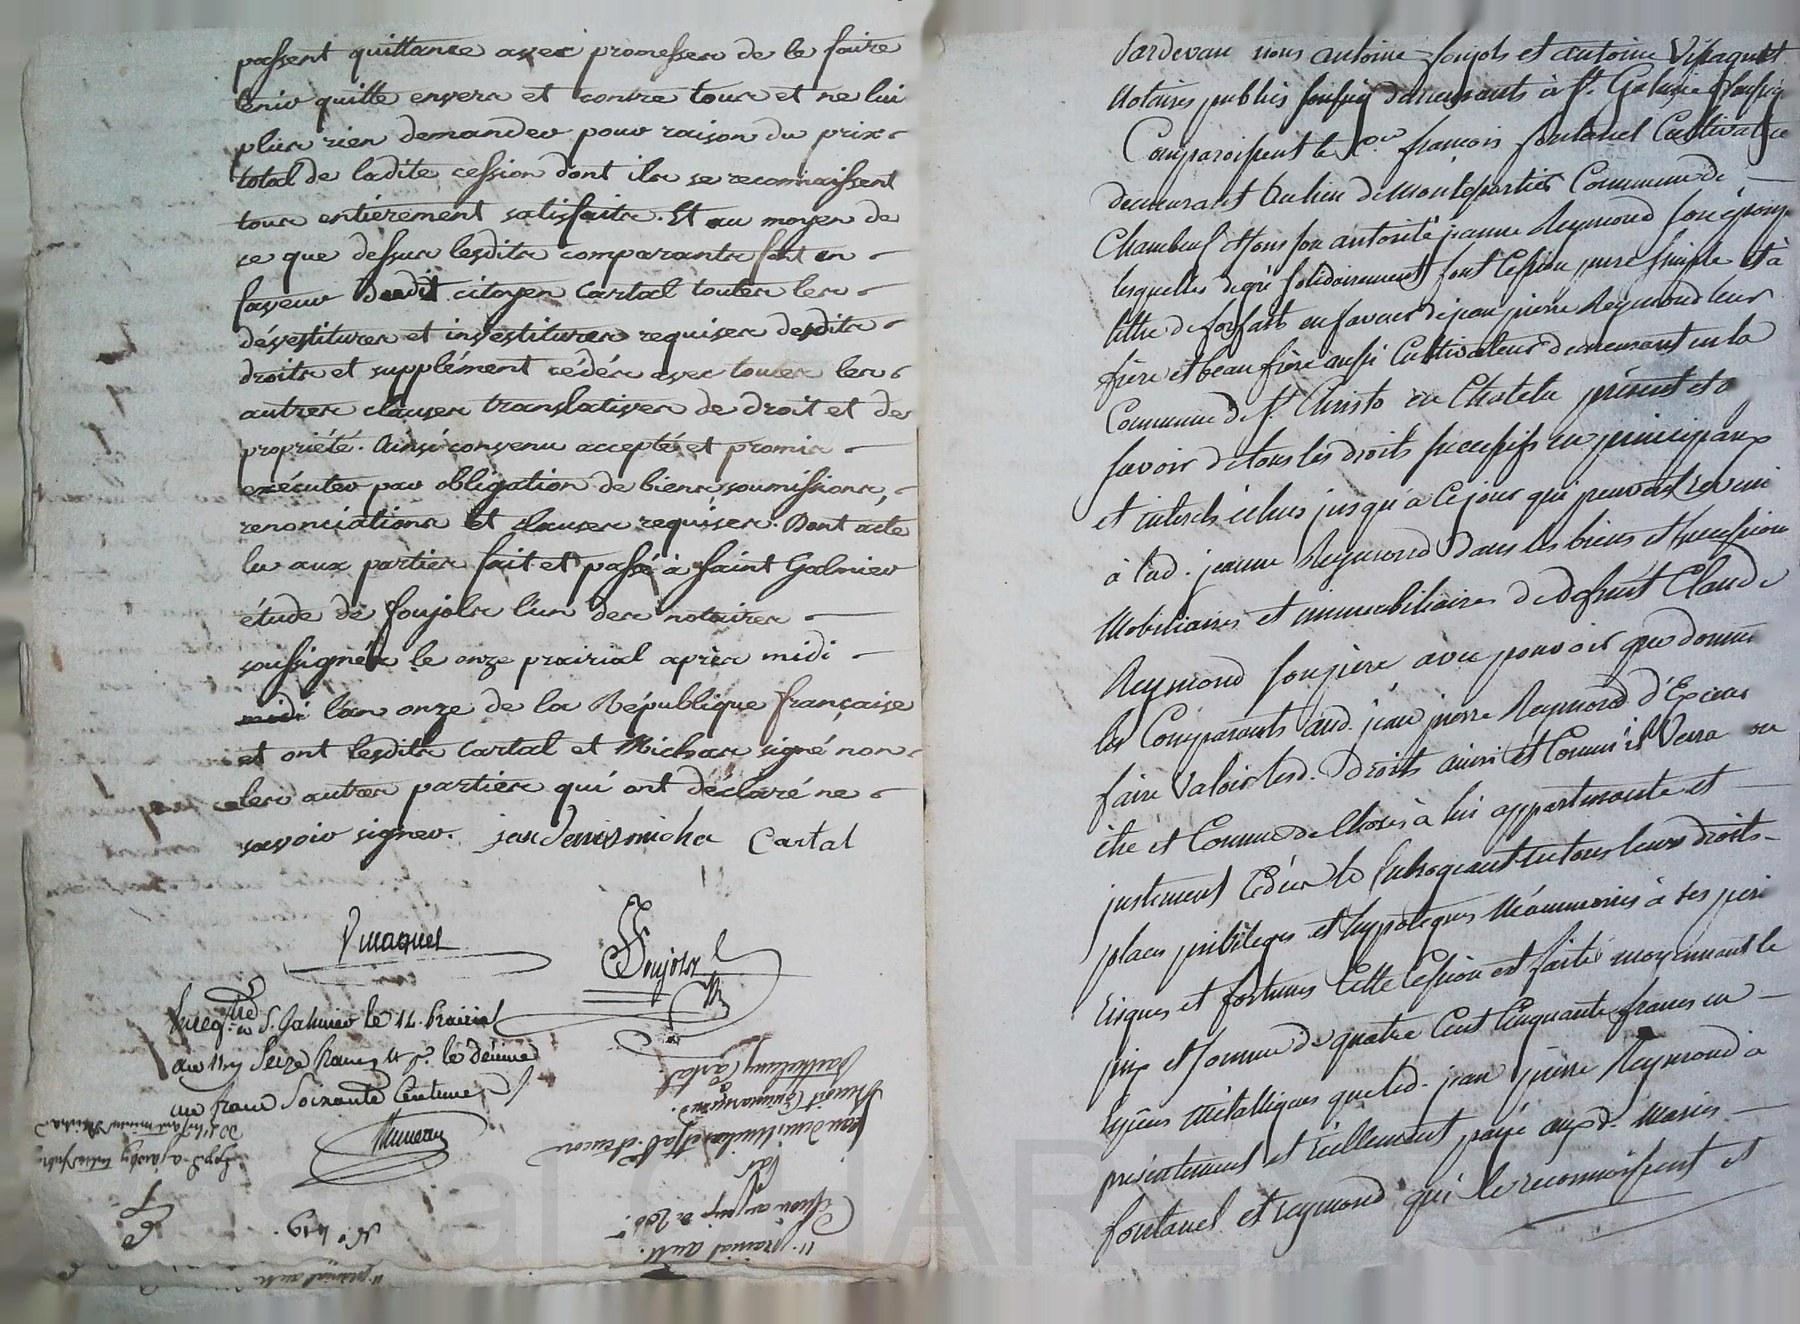 passent quittance avec promesses de le faire
tenir quitte envers et contre tous et ne lui
plus rien demander pour raison du prix
total de ladite cession dont ils se reconnaissent
tous entièrement satisfaits. Et au moyen de
ce que dessus lesdits comparants font en
faveur dudit citoyen Cartal toutes les
dévestitures et investitures requises desdits
droits et supplément cédés avec toutes les
autres clauses translatives de droit et de
propriété. Ainsi convenu accepté et promis
exécuter par obligation de biens, soumissions,
renonciations et clauses requises. Dont acte
lu aux parties fait et passé à Saint Galmier
étude de foujols l'un des notaires
soussignés le onze prairial après midi
midi l'an onze de la République française
et ont lesdits Cartal et Michas signé non
les autres parties qui ont déclaré ne
savoir signer. jean denis micha Cartal
Viraquet
Foujols
Enregtré à St. Galmier le 14. Prairial
an Seize francs le décime
un franc Soixante Centimes
11. prairial an 11.
Cession au prix de 200
par
Jean denis Michas
Benoit
à
Barthelemy Cartal
No. 419.
11. prairial an 11.
Pardevant nous antoine foujols et antoine Viraquet
Notaires publics soussignés demeurants à St. Galmier
Comparoissent le Cen. françois fontanel Cultivateur
demeurant au lieu de Montpartier Commune de
Chambeuf et sous son autorité jeanne Reymond son épouse
lesquelles de gré solidairement font Cession pure simple et à
titre de forfait en faveur de jean pierre Reymond leur
frère et beau frère aussi Cultivateur demeurant en la
Commune de St. Christo en Chatelu présent et
savoir de tous les droits successifs en principaux
et interets échus jusqu'à ce jour qui peuvent revenir
à lad. jeanne Reymond dans les biens et succession
Mobiliaires et immobiliaires de defunt Claude
Reymond son père avec pouvoir que donnent
les Comparants aud. jean pierre Reymond d'Exiger
faire Valoir lesd. droits ainsi et Comme il Verra
être et Comme de Choses à lui appartenante et
justement Cédée le subrogeant en tous leurs droits
places privilèges et hypoteques Néanmoins à ses péri
risques et fortunes Cette Cession est faite moyennant le
prix et somme de quatre Cent Cinquante francs en
Espèces Métalliques que led. jean pierre Reymond a
présentement et réellement payé auxd. Mariés
fontanel et reymond qui le reconnoissent et